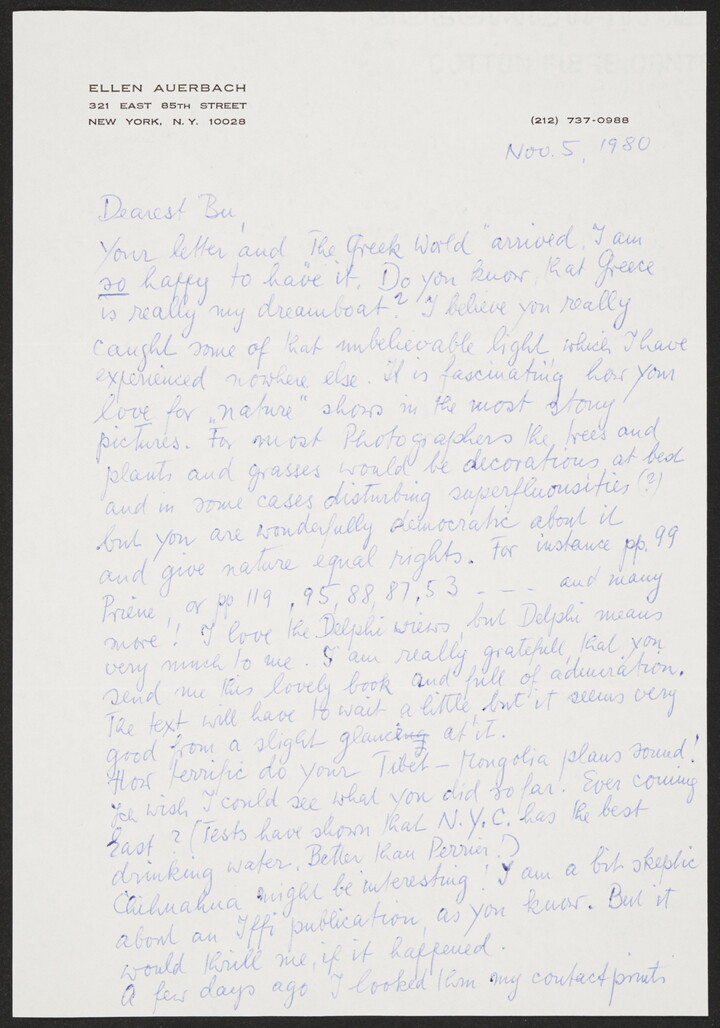 ELLEN AUERBACH
321 EAST 85TH STREET
NEW YORK, N.Y. 10028
(212) 737-0988
Nov. 5, 1980
Dearest Bu,
Your letter and "The Greek World" arrived. I am
so happy to have it. Do you know, that Greece
is really my dreamboat? I believe you really
caught some of that unbelievable light which I have
experienced nowhere else. It is fascinating how your
love for „nature" shows in the most stony
pictures. For most Photographers the trees and
plants and grasses would be decorations at best
and in some cases disturbing superfluousities (?)
but you are wonderfully democratic about it
and give nature equal rights. For instance pp. 99
Priene, or pp 119, 95, 88, 87, 53 - - - and many
more! I love the Delphi views, but Delphi means
very much to me. I am really gratefull, that you
send me this lovely book and full of admiration.
The text will have to wait a little, but it seems very
good from a slight glancing at it.
How terrific do your Tibet – Mongolia plans sound!
wish I could see what you did so far. Ever coming
East? (Tests have shown that N.Y.C. has the best
drinking water. Better than Perrier!)
Chihuahua might be interesting! I am a bit skeptic
about an Iffi publication, as you know. But it
would thrill me, if it happened.
A few days ago I looked thru my contactprints